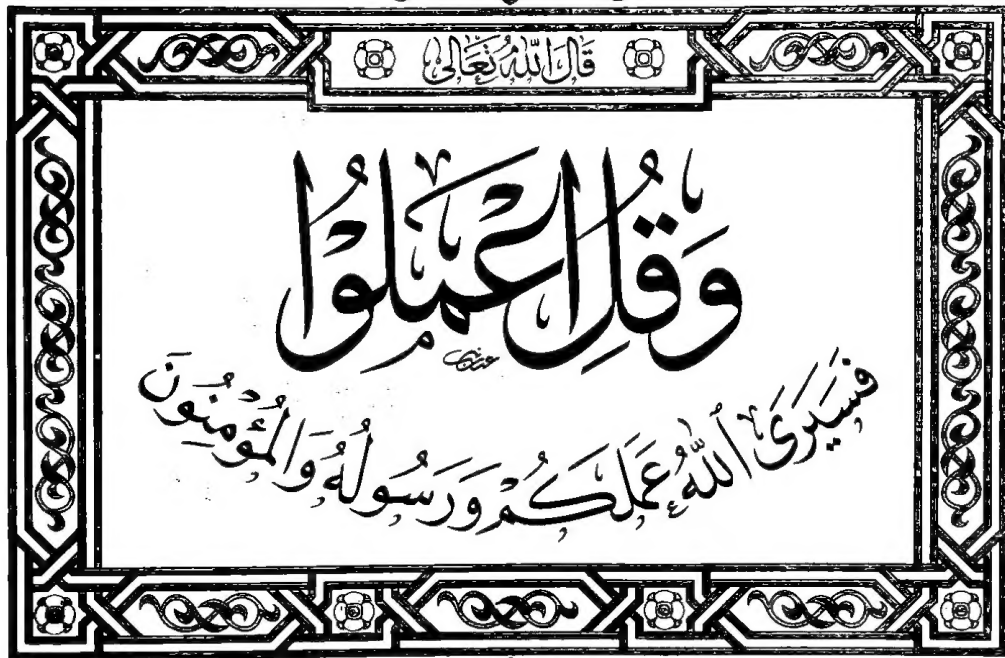 قَالَ اللّٰهُ تَعَالَى
وَقُلِ اعْمَلُوا
فَسَيَرَى اللّٰهُ عَمَلَكُمْ وَرَسُولُهُ وَالْمُؤْمِنُونَ